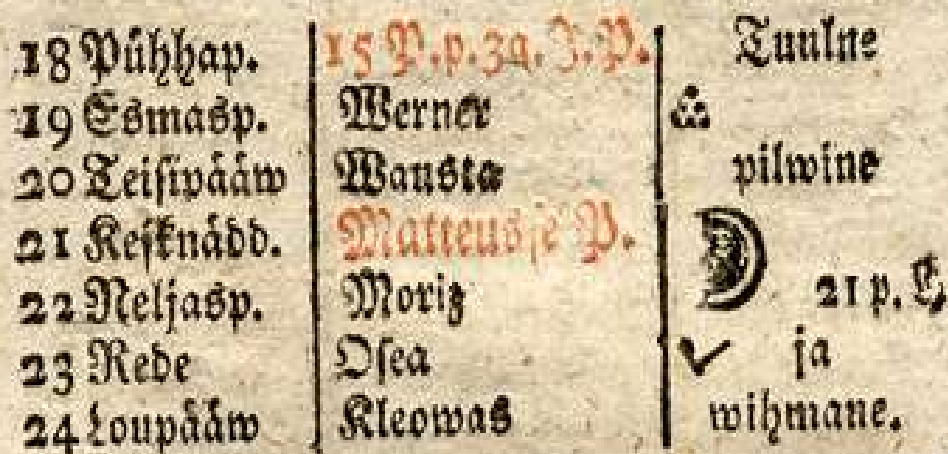 18 Pühhap. 15 P. p. 3a. J. P. Tuulne
19 Esmasp. Werner
20 Teisipääw Wausta pilwine
21 Kesknädd. Matteusse P.
22 Neljasp. Moritz 21 p.
23 Rede Osea ja
24 Loupääw Kleowas wihmane.